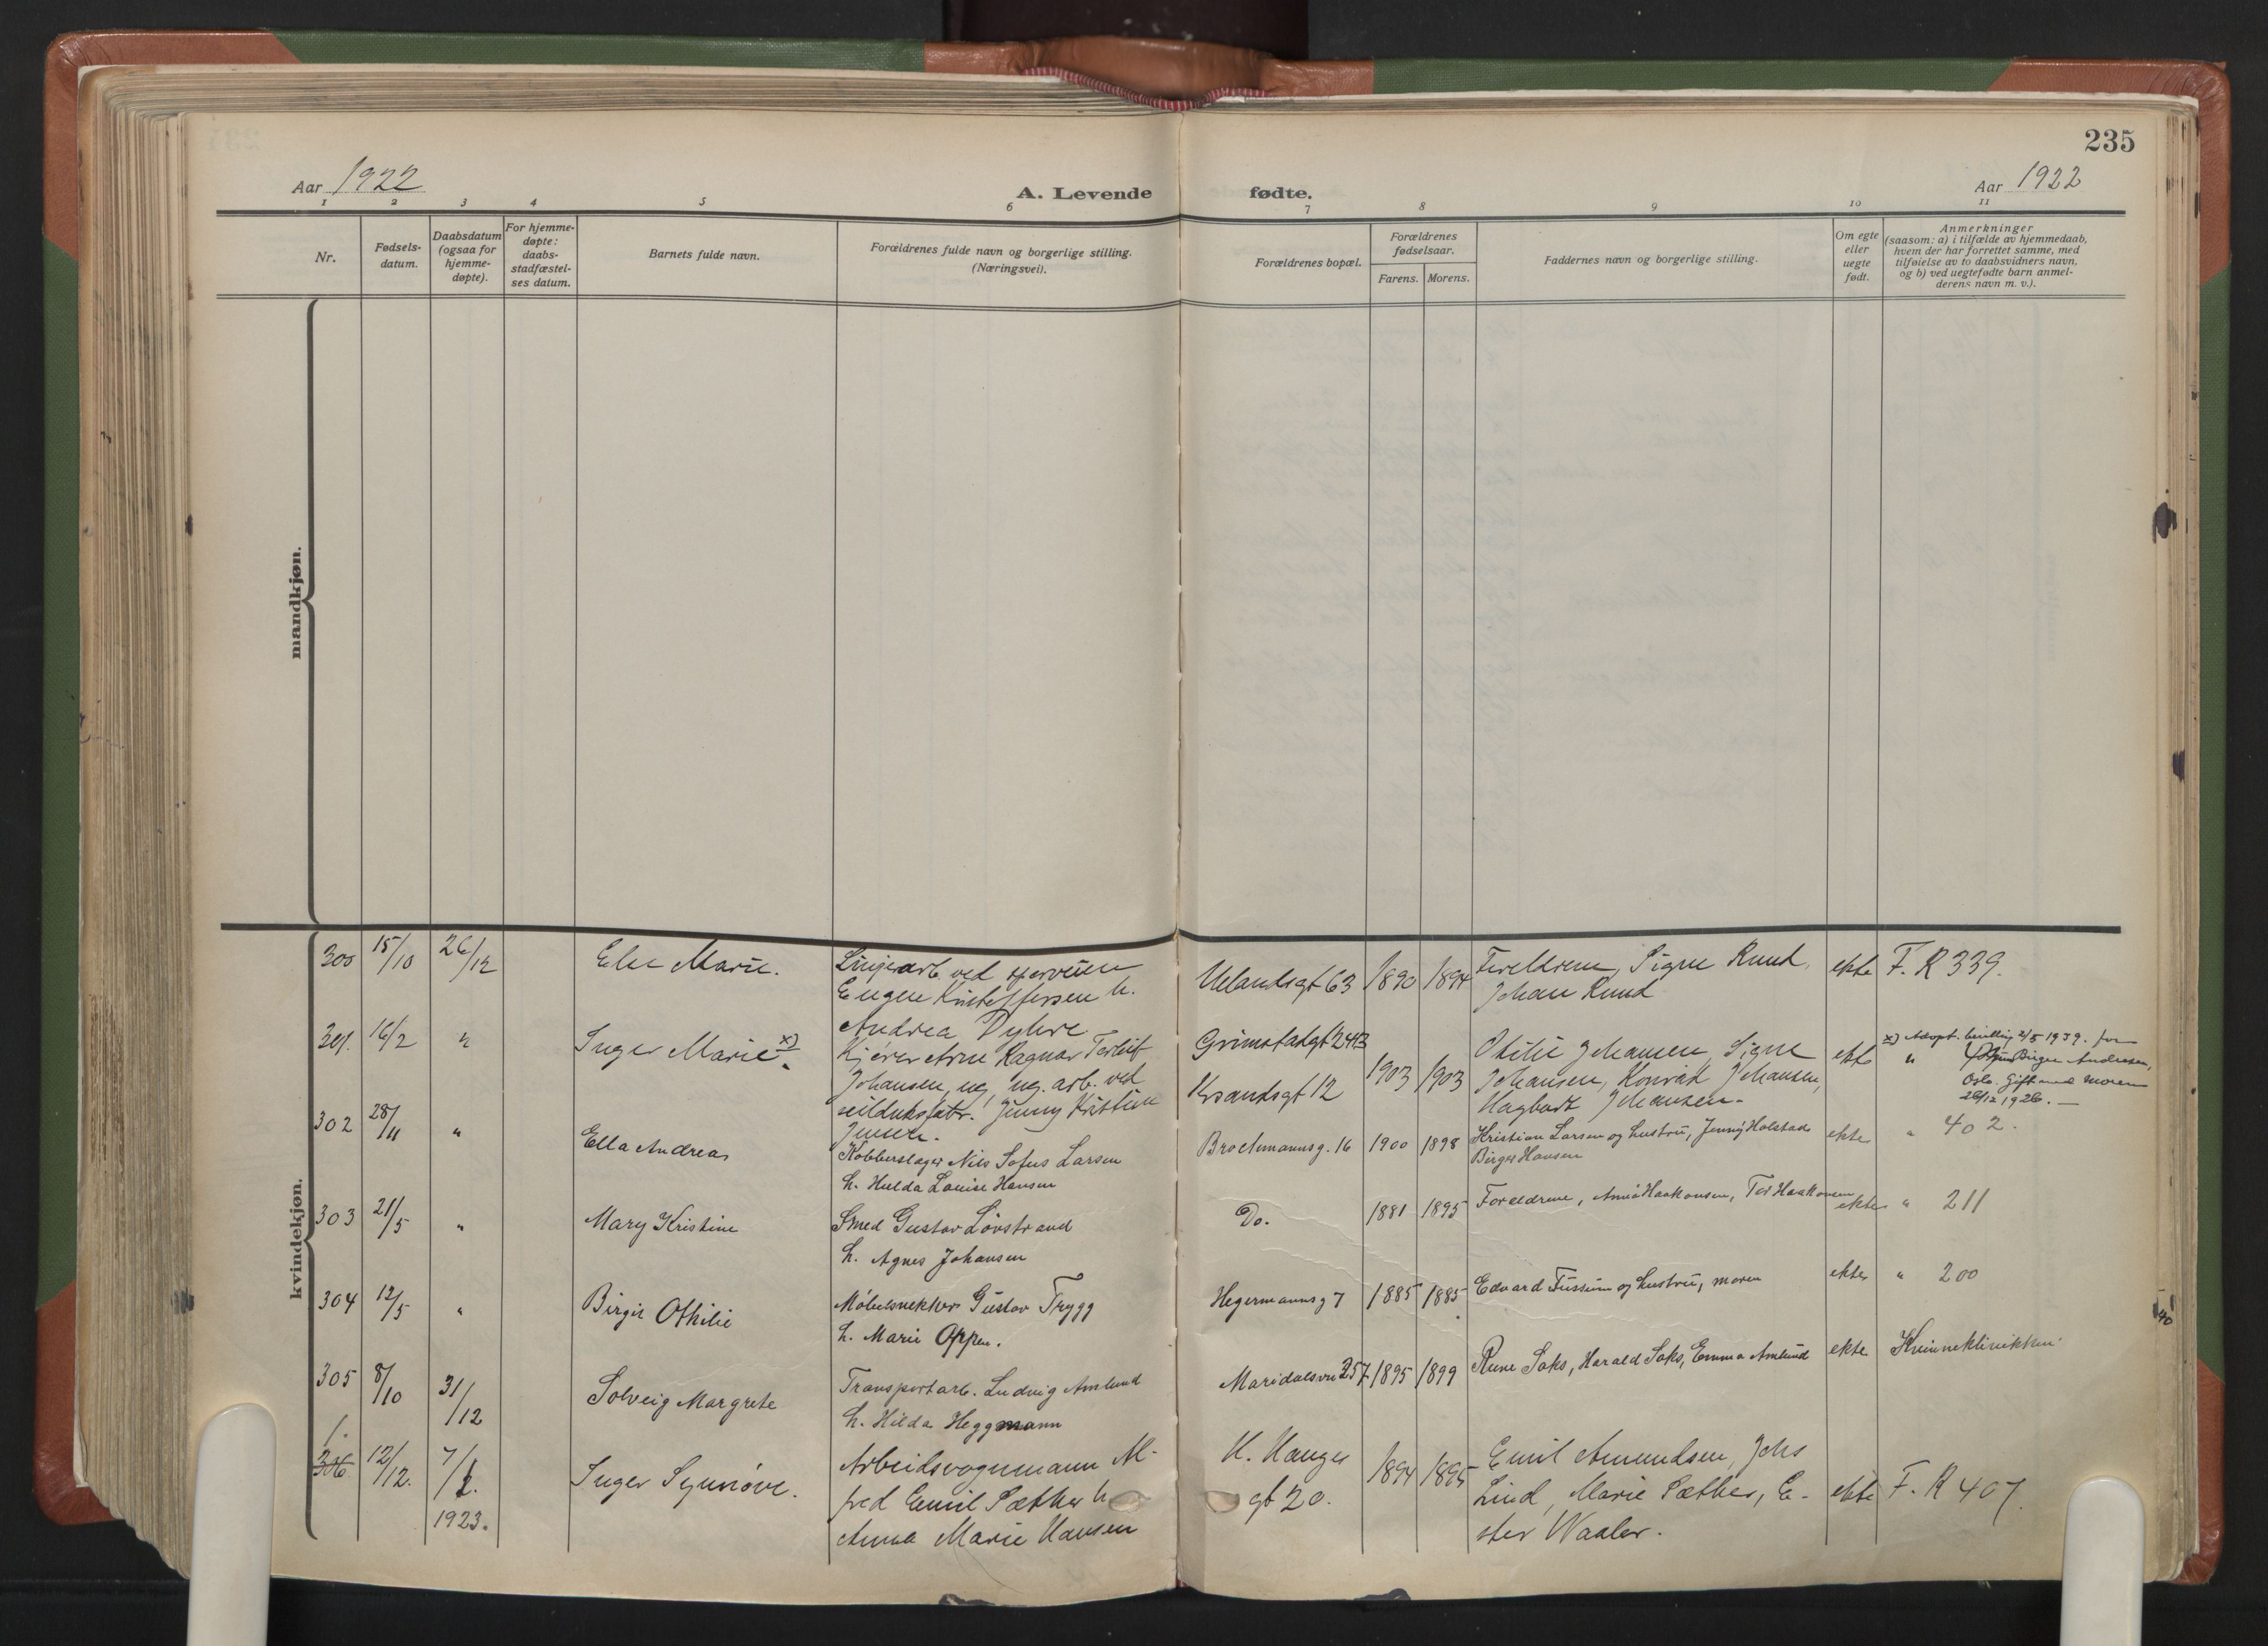 235
Aar 1922
A. Levende fødte.
Aar 1922
1 2 3 4 5 6 7 8 9 10 11
Nr.
Fødsels-
datum.
Daabsdatum
(ogsaa for
hjemme-
døpte).
For hjemme-
døpte:
daabs-
stadfæstel-
ses datum.
Barnets fulde navn.
Forældrenes fulde navn og borgerlige stilling.
(Næringsvei).
Forældrenes bopæl.
Forældrenes
fødselsaar.
Farens. Morens.
Faddernes navn og borgerlige stilling.
Om egte
eller
uegte
født.
Anmerkninger
(saasom: a) i tilfælde av hjemmedaab,
hvem der har forrettet samme, med
tilføielse av to daabsvidners navn,
og b) ved uegtefødte barn anmel-
derens navn m. v.).
mandkjøn.
kvindekjøn.
300 15/10 26/12 Else Marie.
Linjearb. ved sporveien
Eugen Kristoffersen h.
Andrea Dyhre
Uelandsgt 63 1890 1894
Foreldrene, Signe Ruud,
Johan Ruud
ekte F. R 339.
301. 16/2 " Inger Marie x)
Kjører Arne Ragnar Torleif
Johansen, ug., ug. arb. ved
seildugsfabr. Jenny Kristine
Jensen.
Grimstadgt 24B
Krsandsgt 12 1903 1903
Otilie Johansen, Signe
Johansen, Konrad Johansen,
Hagbart Johansen.
ekte "
x) Adopt. bevilling 2/5 1939. for
Birger Andersen,
Oslo. Gift med moren
26/12 1926.
302 28/11 " Ella Andrea
Kobberslager Nils Sofus Larsen
h. Hulda Louise Hansen
Brochmannsg. 16 1900 1898
Kristian Larsen og hustru, Jenny Holstad
Birger Hansen
ekte " 402.
303 21/5 " Mary Kristine
Smed Gustav Lövstrand
h. Agnes Johansen
Do. 1881 1895
Foreldrene, Anna Haakonsen, Tor Haakonsen
ekte " 211
304 12/5 " Birgit Othilie
Møbelsnekker Gustav Trygg
h. Marie Oppen.
Hegermannsg 7 1885 1885
Edvard Fussum og hustru, moren
ekte " 200
305 8/10 31/12 Solveig Margrete
Transportarb. Ludvig Amlund
h. Hilda Heggmann
Maridalsvei 257 1895 1899
Rune Saks, Harald Saks, Emma Amlund
ekte Kvinneklinikken
1.
306 12/12. 7/1. 1923. Inger Synnöve.
Arbeidsvognmann Al-
fred Emil Sæther h
Anna Marie Hansen
H. Hauges
gt 20. 1894 1895
Emil Amundsen, Johs
Lind, Marie Sæther, E-
ster Waaler.
ekte F. R 407.